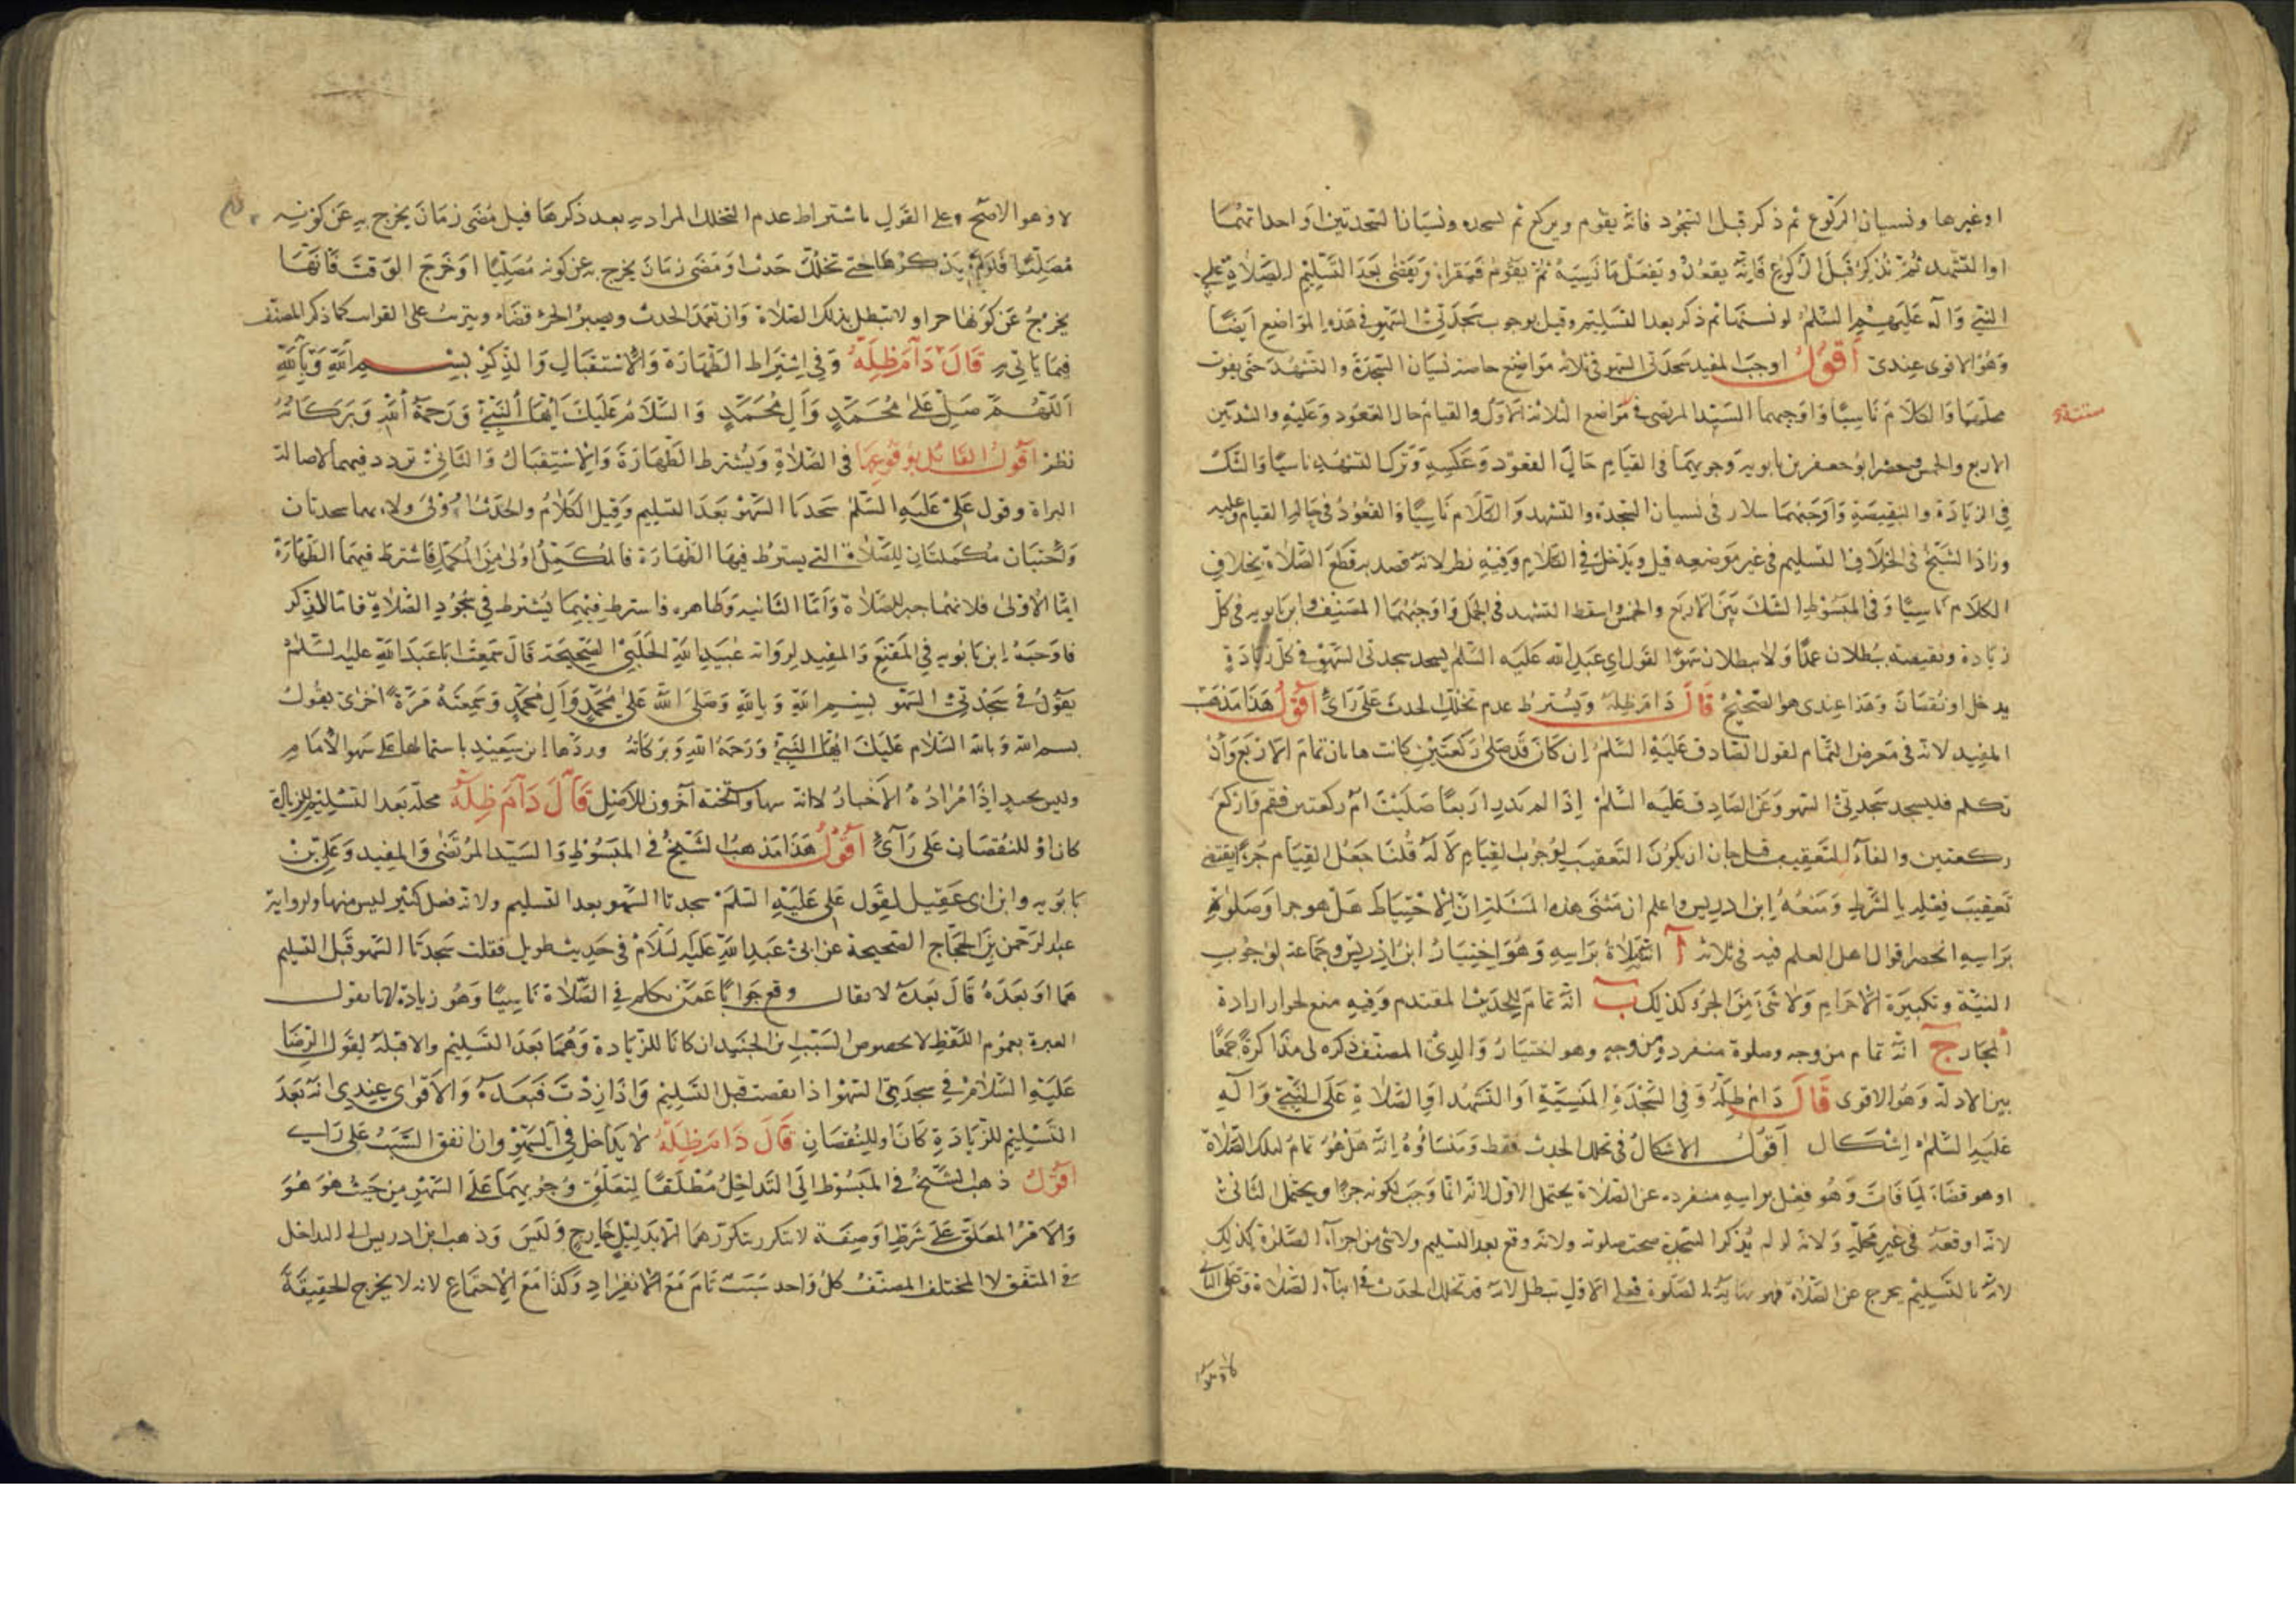 او غيرها ونسيان الركوع ثم ذكر قبل السجود فانه يقوم ويركع ثم يسجد ونسيان السجدتين او احداتهما
او التشهد ثم يذكر قبل الركوع فانه يقعد ويفعل ما نسيه ثم يقوم فيقرا ويقضى بعد التسليم الصلاة على
النبي وآله عليهم السلم لو نسيهما ثم ذكر بعد التسليم وقيل بوجوب سجدتى السهو فى هذه المواضع ايضا
وهو الاقوى عندى أقول اوجب المفيد سجدتى السهو فى ثلاثه مواضع خاصة نسيان السجدة والتشهد حتى يفوت
محلهما والكلام ناسيا واوجبهما السيد المرتضى فى مواضع الثلاثة الاول والقيام حال القعود وعكسه والشك بين
الاربع والخمس وحصر ابو جعفر بن بابويه وجوبهما فى القيام حال القعود وعكسه وترك التشهد ناسيا والشك
فى الزيادة والنقيصة واوجبهما سلار فى نسيان السجدة والتشهد والكلام ناسيا والقعود فى حال القيام وعليه
وزاد الشيخ فى الخلاف التسليم فى غير موضعه قيل ويدخل فى الكلام وفيه نظر لانه قصد به قطع الصلاة بخلاف
الكلام ناسيا وفى المبسوط الشك بين الاربع والخمس واسقط التشهد فى الجمل واوجبهما المصنف وابن بابويه فى كل
زيادة ونقيصة يبطلان عمدا ولا يبطلان سهوا لقول ابى عبد الله عليه السلم يسجد سجدتى السهو فى كل زيادة
يدخل او نقصان وهذا عندى هو الصحيح قال دام ظله ويشترط عدم تخلل الحدث على رأى أقول هذا مذهب
المفيد لانه فى معرض التمام لقول الصادق عليه السلم ان كان قد صلى ركعتين كانت هاتان تمام الاربع وان
تكلم فليسجد سجدتى السهو وعن الصادق عليه السلم اذا لم يدر اربعا صليت ام ركعتين فقم واركع
ركعتين والفاء للتعقيب قيل جاز ان يكون التعقيب لوجوب القيام لا له قلنا جعل القيام جزءا يقتضى
تعقيب فعله بالشرط ومنعه ابن ادريس واعلم ان مبنى هذه المسئلة ان الاحتياط هل هو جزء او صلوة
براسه انحصر اقوال اهل العلم فيه فى ثلاثه آ انه صلاة براسه وهو اختيار ابن ادريس وجماعة لوجوب
النية وتكبيرة الاحرام ولا شىء من الجزء كذلك ب انه تمام للحديث المقتدم وفيه منع لجواز ارادة
المجاز ج انه تمام من وجه وصلوة منفردة من وجه وهو اختيار والدى المصنف ذكره لى مذاكرة جمعا
بين الادلة وهو الاقوى قال دام ظله وفى السجدة المنسية او التشهد او الصلاة على النبى وآله
عليه السلم اشكال أقول الاشكال فى تخلل الحدث فقط ومنشاؤه انه هل هو تمام لتلك الصلاة
او هو قضاء لما فات وهو فعل براسه منفرد عن الصلاة يحتمل الاول لانه انما وجب لكونه جزءا ويحتمل الثانى
لانه اوقعه فى غير محله ولانه لو لم يذكر السجدة صحت صلوته ولانه وقع بعد التسليم ولا شىء من اجزاء الصلوة كذلك
لانه بالتسليم يخرج عن الصلاة فعلى الاول تبطل لانه قد تخلل الحدث فى اثناء الصلاة وعلى الثانى
لا وهو الاصح وعلى القول باشتراط عدم التخلل المراد به بعد ذكرها قبل مضى زمان يخرج به عن كونه
مصليا فلو لم يذكرها حتى تخلل حدث او مضى زمان يخرج به عن كونه مصليا او خرج الوقت فانها
يخرج عن كونها جزءا ولا تبطل بذلك الصلاة وان تعمد الحدث ويصير الجزء قضاء ويترتب على الفوات كما ذكر المصنف
فيما ياتى به قال دام ظله وفى اشتراط الطهارة والاستقبال والذكر بسم الله وبالله
اللهم صل على محمد وآل محمد والسلام عليك ايها النبى ورحمة الله وبركاته
نظر أقول القائل بوقوعهما فى الصلاة ويشترط الطهارة والاستقبال والثانى تردد فيهما لاصالة
البراة وقول على عليه السلم سجدتا السهو بعد التسليم وقيل الكلام والحدث اولى ولانهما سجدتان
واجبتان مكملتان للصلاة التى يشترط فيها الطهارة فالمكمل اولى من المكمل فاشترط فيهما الطهارة
اما الاولى فلانهما جبر للصلاة واما الثانيه وظاهره فاشترط فيهما يشترط فى سجود الصلاة فاما الذكر
فاوجبه ابن بابويه فى المقنع والمفيد لرواية عبيد الله الحلبى الصحيحة قال سمعت ابا عبد الله عليه السلم
يقول فى سجدتى السهو بسم الله وبالله وصلى الله على محمد وآل محمد وسمعته مرة اخرى يقول
بسم الله وبالله السلام عليك ايها النبى ورحمة الله وبركاته وردها ابن سعيد باشتمالها على سهو الامام
وليس بجيد اذا مراده الاخبار لا انه سها قال دام ظله محله بعد التسليم للزيادة
كانا او للنقصان على رأى أقول هذا مذهب الشيخ فى المبسوط والسيد المرتضى والمفيد وعلى بن
بابويه وابن ابى عقيل لقول على عليه السلم سجدتا السهو بعد التسليم ولانه فعل كثير ليس منها ولرواية
عبد الرحمن بن الحجاج الصحيحة عن ابى عبد الله عليه السلام فى حديث طويل فقلت سجدتا السهو قبل التسليم
هما او بعده قال بعده لا يقال وقع جوابا عمن تكلم فى الصلاة ناسيا وهو زيادة لانا نقول
العبرة بعموم اللفظ لا بخصوص السبب ابن الجنيد ان كانا للزيادة وهما بعد التسليم والا قبله لقول الرضا
عليه السلام فى سجدتى السهو اذا نقصت قبل التسليم واذا زدت فبعده والاقوى عندى انه بعد
التسليم للزيادة كانا او للنقصان قال دام ظله لا يداخل فى السهو وان اتفق السبب على راى
أقول ذهب الشيخ فى المبسوط الى التداخل مطلقا لتعلق وجوبهما على السهو من حيث هو هو
والامر المعلق على شرط او صفة لا يتكرر بتكررهما الا بدليل خارج وليس وذهب ابن ادريس الى التداخل
فى المتفق لا المختلف المصنف كل واحد سبب تام مع الانفراد وكذا مع الاجتماع لانه لا يخرج الحقيقة